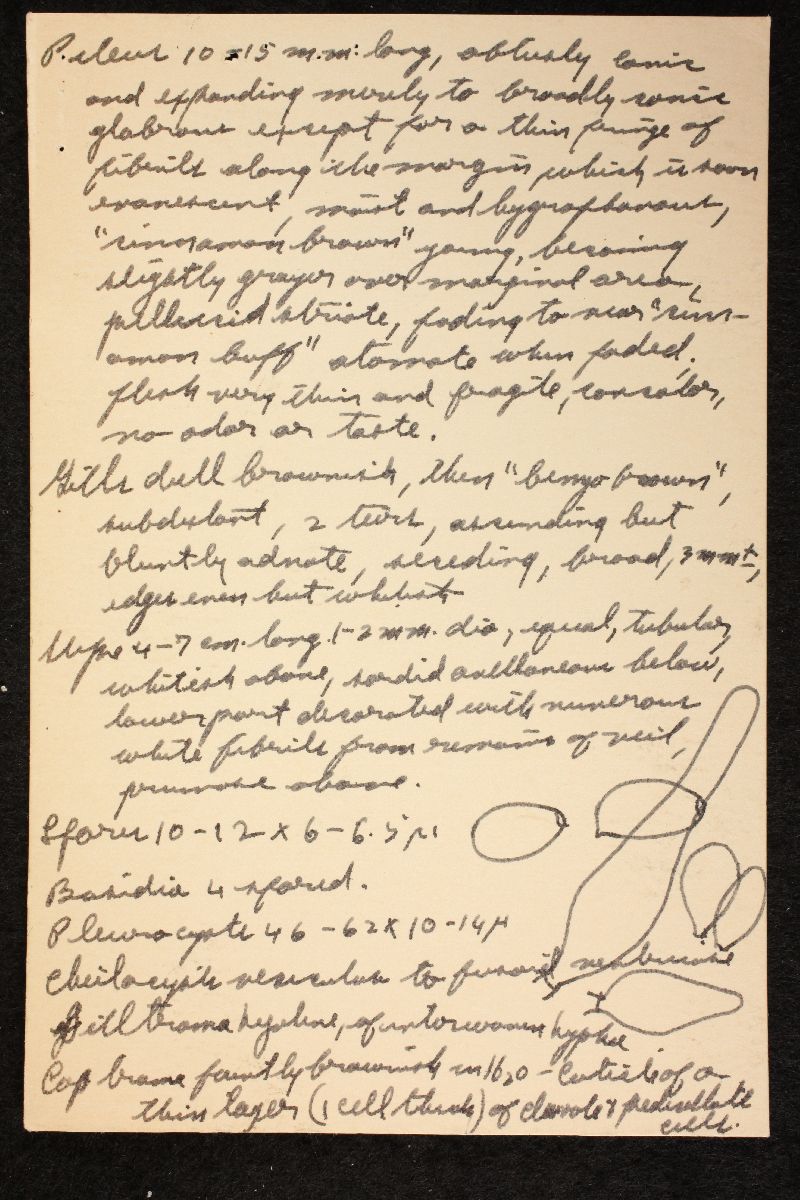 Pileus 10-15 m.m. long, obtusely conic
and expanding merely to broadly conic
glabrous except for a thin fringe of
fibrils along the margin which is soon
evanescent, moist and hygrophanous,
"cinnamon brown" young, becoming
slightly grayer over marginal area,
pellucid striate, fading to near "cinn-
amon buff" atomate when faded,
flesh very thin and fragile, concolor,
no odor or taste.
Gills dull brownish, then "benzo brown",
subdistant, 2 tiers, ascending but
bluntly adnate, seceding, broad, 3 mm ±,
edges even but whitish
Stipe 4-7 cm. long 1-2 mm. dia, equal, tubular,
whitish above, sordid avellaneous below,
lower part decorated with numerous
white fibrils from remains of veil,
pruinose above.
Spores 10-12 x 6-6.5 μ
Basidia 4 spored.
Pleurocysts 46-62 x 10-14 μ
Cheilocysts vesicular to fusoid ventricose
Gill trama hyaline, of interwoven hyphae
Cap trama faintly brownish in H2O - Cuticle of a
thin layer (1 cell thick) of clavate & pedicellate
cells.